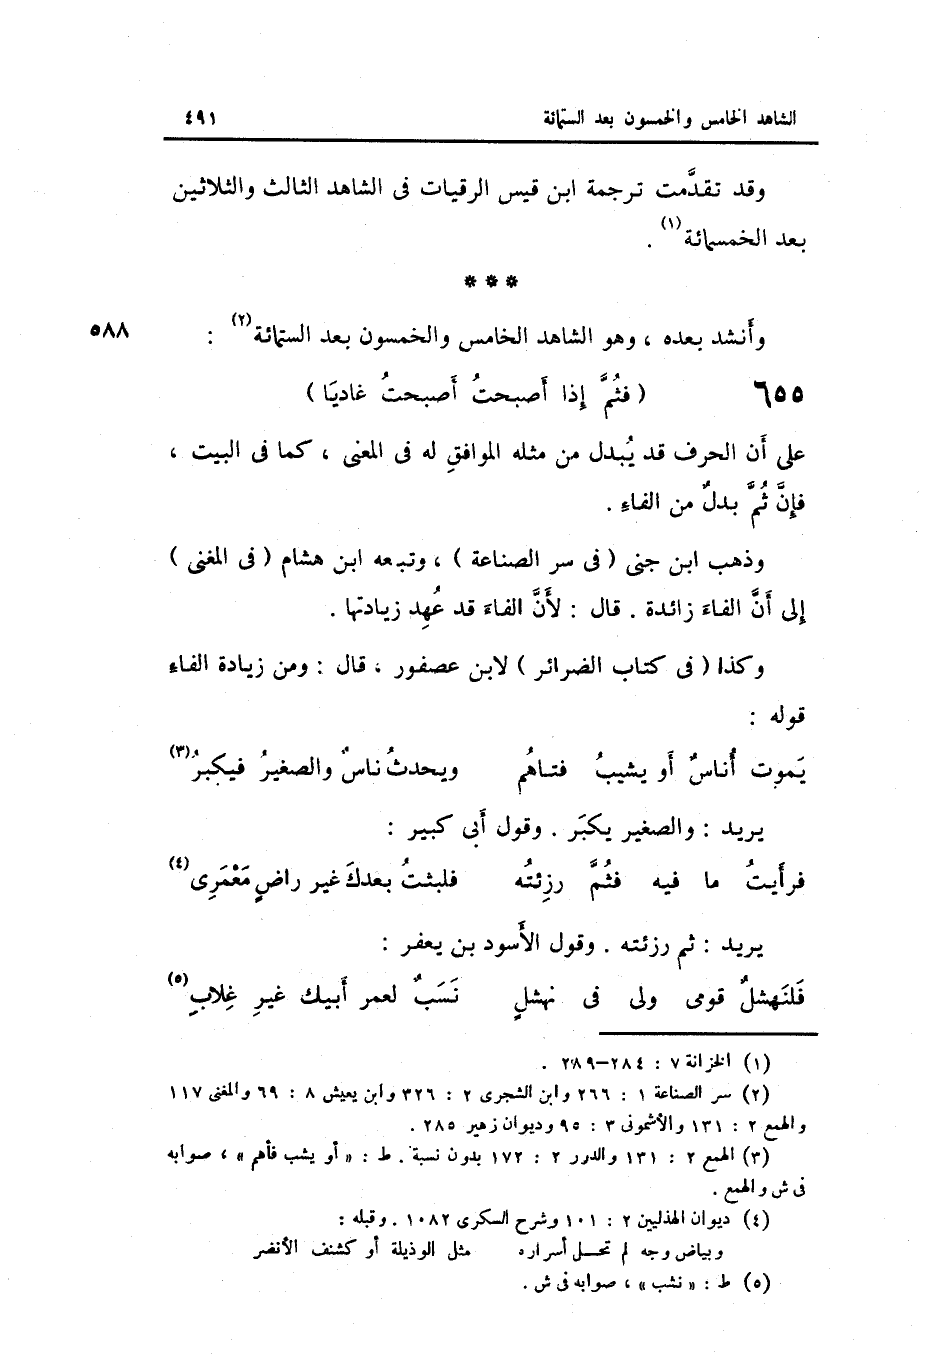 الشاهد الخامس والخمسون بعد الستمائة ٤٩١
وقد تقدَّمت ترجمة ابن قيس الرقيات فى الشاهد الثالث والثلاثين
بعد الخمسمائة (١) .
* * *
وأَنشد بعده ، وهو الشاهد الخامس والخمسون بعد الستمائة (٢) : ٥٨٨
٦٥٥ ( فثُمَّ إذا أَصبحتُ أَصبحتُ غاديَا )
على أَن الحرف قد يُبدل من مثله الموافقِ له فى المعنى ، كما فى البيت ،
فإنَّ ثُمَّ بدلٌ من الفاءِ .
وذهب ابن جنى ( فى سر الصناعة ) ، وتبعه ابن هشام ( فى المغنى )
إلى أَنَّ الفاءَ زائدة . قال : لأَنَّ الفاءَ قد عُهِد زيادتها .
وكذا ( فى كتاب الضرائر ) لابن عصفور ، قال : ومن زيادة الفاء
قوله :
يَموت أُناسٌ أَو يشيبُ فتاهُم ويحدثُ ناسٌ والصغيرُ فيكبرُ (٣)
يريد : والصغير يكبَر . وقول أَبى كبير :
فرأَيتُ ما فيه فثُمَّ رزِئتُه فلبثتُ بعدكَ غير راضٍ مَعْمَرِى (٤)
يريد : ثم رزئته . وقول الأَسود بن يعفر :
فَلنَهشلٌ قومى ولى فى نهشلٍ نَسَبٌ لعمر أَبيك غيرِ غِلابِ (٥)
(١) الخزانة ٧ : ٢٨٤–٢٨٩ .
(٢) سر الصناعة ١ : ٢٦٦ وابن الشجرى ٢ : ٣٢٦ وابن يعيش ٨ : ٦٩ والمغنى ١١٧
والهمع ٢ : ١٣١ والأشمونى ٣ : ٩٥ وديوان زهير ٢٨٥ .
(٣) الهمع ٢ : ١٣١ والدرر ٢ : ١٧٢ بدون نسبة . ط : « أو يشب فأهم » ، صوابه
فى ش والهمع .
(٤) ديوان الهذليين ٢ : ١٠١ وشرح السكرى ١٠٨٢ . وقبله :
وبياض وجه لم تحل أسراره مثل الوذيلة أو كشنف الأنضر
(٥) ط : « نشب » ، صوابه فى ش .